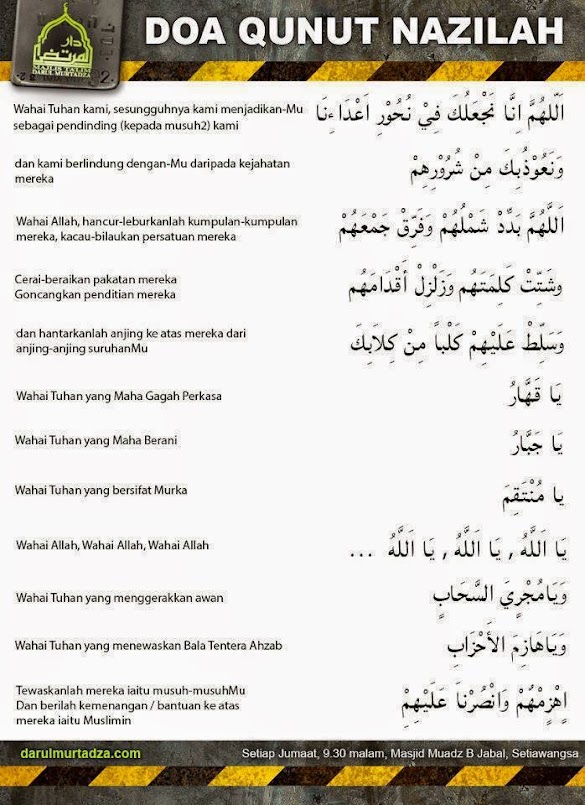 دار المرتضى
MAJLIS TA'LIM
DARUL MURTADZA
DOA QUNUT NAZILAH
Wahai Tuhan kami, sesungguhnya kami menjadikan-Mu
sebagai pendinding (kepada musuh2) kami
اَللّٰهُمَّ اِنَّا نَجْعَلُكَ فِيْ نُحُوْرِ اَعْدَاءِنَا
dan kami berlindung dengan-Mu daripada kejahatan
mereka
وَنَعُوْذُبِكَ مِنْ شُرُوْرِهِمْ
Wahai Allah, hancur-leburkanlah kumpulan-kumpulan
mereka, kacau-bilaukan persatuan mereka
اَللَّهُمَّ بَدِّدْ شَمْلَهُمْ وَفَرِّقْ جَمْعَهُمْ
Cerai-beraikan pakatan mereka
Goncangkan penditian mereka
وشَتِّتْ كَلِمَتَهُم وَزَلْزِلْ أَقْدَامَهُم
dan hantarkanlah anjing ke atas mereka dari
anjing-anjing suruhanMu
وَسَلِّطْ عَلَيْهِمْ كَلْباً مِنْ كِلاَبِكَ
Wahai Tuhan yang Maha Gagah Perkasa
يَا قَهَّارُ
Wahai Tuhan yang Maha Berani
يَا جَبَّارُ
Wahai Tuhan yang bersifat Murka
يا مُنْتَقِمَ
Wahai Allah, Wahai Allah, Wahai Allah
يَا اَللَّهُ , يَا اَللَّهُ , يَا اَللَّهُ ...
Wahai Tuhan yang menggerakkan awan
وَيَامُجْرِيَ السَّحَابِ
Wahai Tuhan yang menewaskan Bala Tentera Ahzab
وَيَاهَازِمَ الأَحْزَابِ
Tewaskanlah mereka iaitu musuh-musuhMu
Dan berilah kemenangan / bantuan ke atas
mereka iaitu Muslimin
اِهْزِمْهُمْ وَانْصُرْناَ عَلَيْهِمْ
darulmurtadza.com
Setiap Jumaat, 9.30 malam, Masjid Muadz B Jabal, Setiawangsa